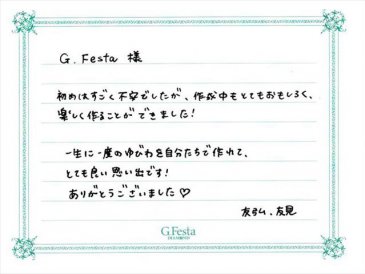 G. Festa 様
初めはすごく不安でしたが、作成中もとてもおもしろく、
楽しく作ることができました!
一生に一度のゆびわを自分たちで作れて、
とても良い思い出です!
ありがとうございました♡
友弘、友見
G.Festa